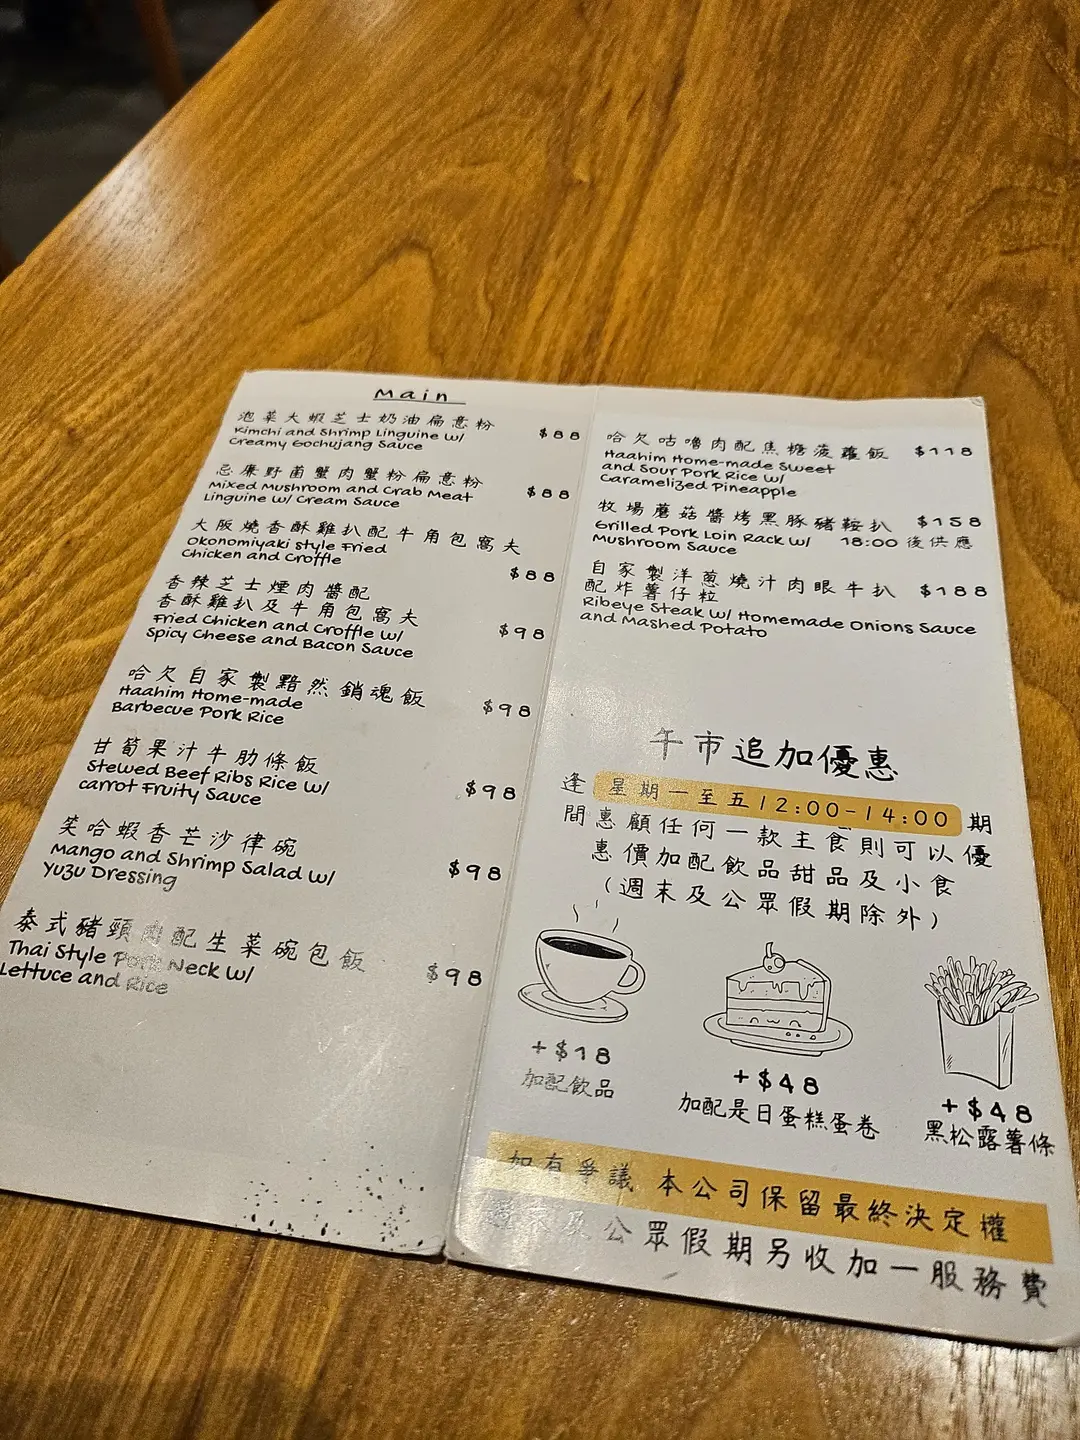 Main
泡菜大蝦芝士奶油扁意粉
Kimchi and Shrimp Linguine w/
Creamy Gochujang Sauce
$88
忌廉野菌蟹肉蟹粉扁意粉
Mixed Mushroom and Crab Meat
Linguine w/ Cream Sauce
$88
大阪燒香酥雞扒配牛角包窩夫
Okonomiyaki Style Fried
Chicken and Croffle
$88
香辣芝士煙肉醬配
香酥雞扒及牛角包窩夫
Fried Chicken and Croffle w/
Spicy Cheese and Bacon Sauce
$98
哈欠自家製黯然銷魂飯
Haahim Home-made
Barbecue Pork Rice
$98
甘筍果汁牛肋條飯
Stewed Beef Ribs Rice w/
carrot Fruity Sauce
$98
笑哈蝦香芒沙律碗
Mango and Shrimp Salad w/
Yuzu Dressing
$98
泰式豬頸肉配生菜碗包飯
Thai Style Pork Neck w/
Lettuce and Rice
$98
哈欠咕嚕肉配焦糖菠蘿飯 $118
Haahim Home-made Sweet
and Sour Pork Rice w/
Caramelized Pineapple
牧場蘑菇醬烤黑豚豬鞍扒 $158
Grilled Pork Loin Rack w/ 18:00後供應
Mushroom Sauce
自家製洋蔥燒汁肉眼牛扒 $188
配炸薯仔粒
Ribeye Steak w/ Homemade Onions Sauce
and Mashed Potato
午市追加優惠
逢星期一至五12:00-14:00期
間惠顧任何一款主食則可以優
惠價加配飲品甜品及小食
(週末及公眾假期除外)
+$18
加配飲品
+$48
加配是日蛋糕蛋卷
+$48
黑松露薯條
如有爭議 本公司保留最終決定權
及公眾假期另收加一服務費